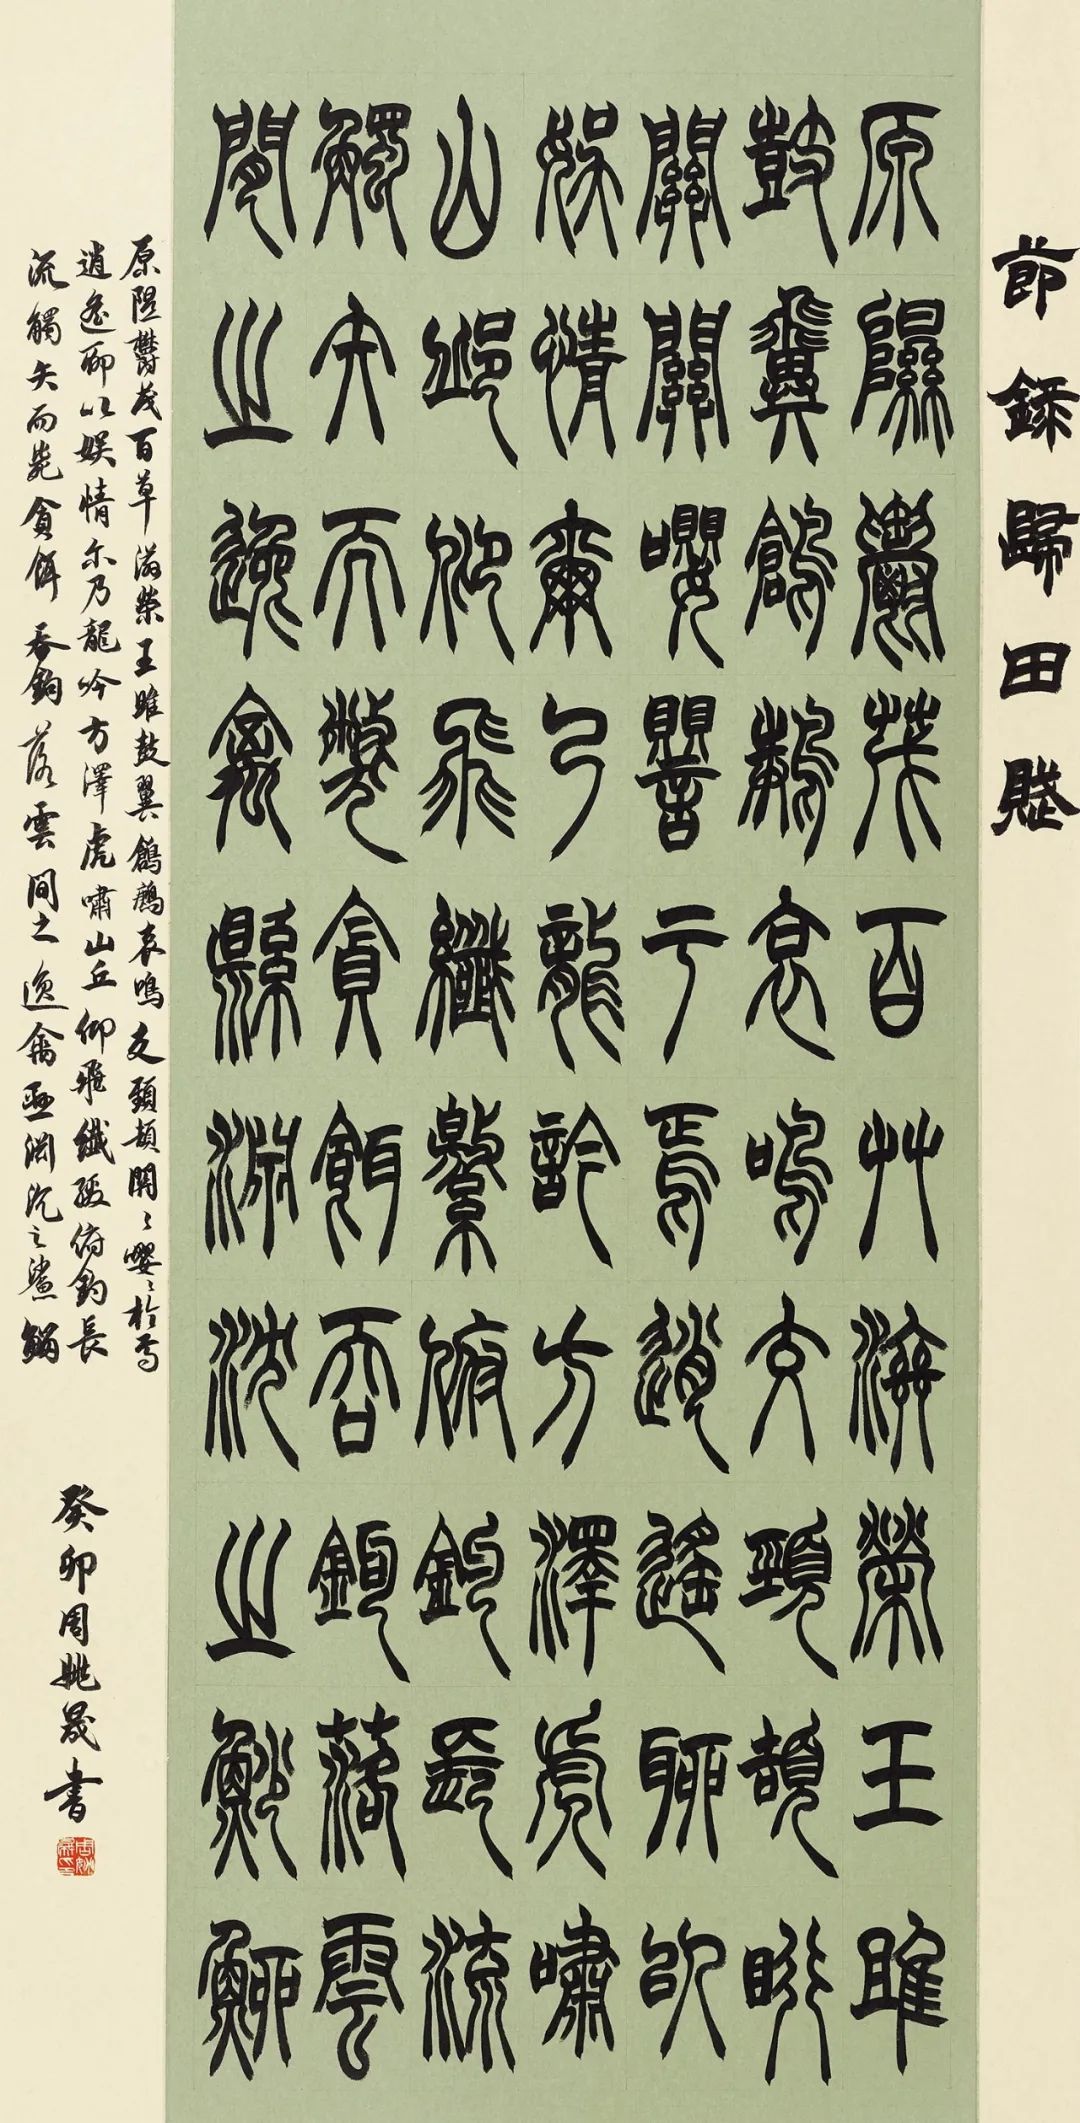 節錄歸田賦
原隰鬱茂百艸滋榮王雎
鼓翼鶬鶊哀鳴交頸頡頏
關關嚶嚶于焉逍遙聊以
娛情爾乃龍吟方澤虎嘯
山丘仰飛纖繳俯釣長流
觸矢而斃貪餌吞鉤落雲
間之逸禽縣淵沈之魦鰡
原隰鬱茂百草滋榮王雎鼓翼鶬鶊哀鳴交頸頡關〻嚶〻於焉
逍遙聊以娛情尔乃龍吟方澤虎嘯山丘仰飛纖繳俯釣長
流觸矢而斃貪餌吞鉤落雲間之逸禽懸淵沉之鯊鰡
癸卯周姚晟書